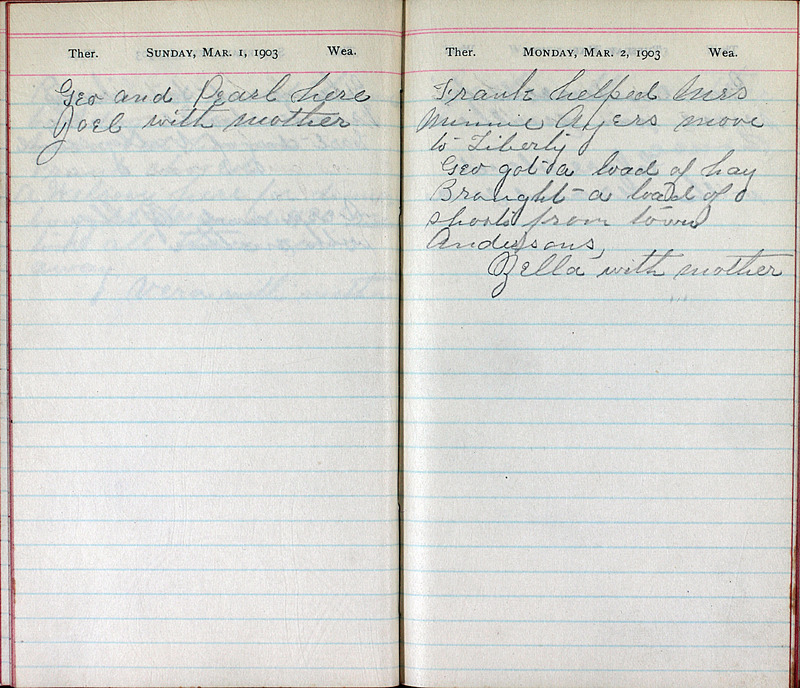 Ther. SUNDAY, MAR. 1, 1903 Wea.
Geo and Pearl here
Joel with mother
Ther. MONDAY, MAR. 2, 1903 Wea.
Frank helped Mrs
Minnie Ayers move
to Liberty
Geo got a load of hay
Brought a load of
shorts from town
Andersons,
Zella with mother